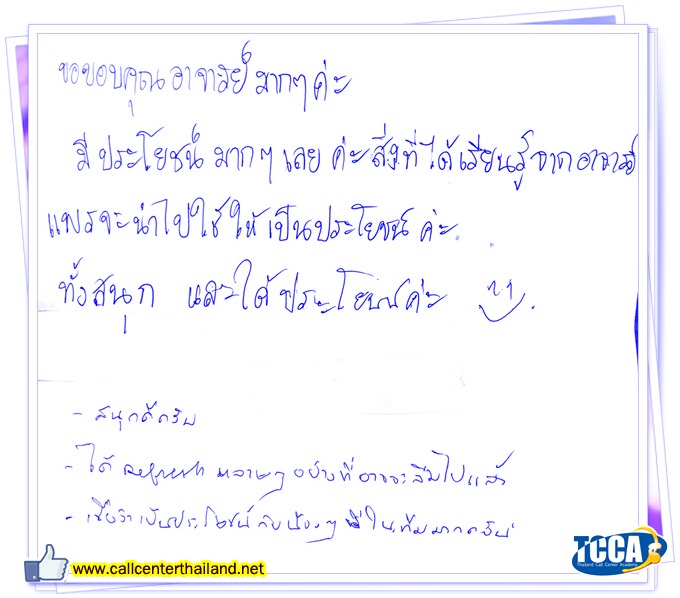 ขอขอบคุณอาจารย์ มากๆค่ะ
มีประโยชน์ มากๆ เลย ค่ะ สิ่งที่ได้เรียนรู้จากอาจารย์
แพรจะนำไปใช้ให้เป็นประโยชน์ ค่ะ.
ทั้งสนุก และได้ประโยชน์ค่ะ
- สนุกดีครับ
- ได้ refresh หลายๆ อย่างที่อาจจะลืมไปแล้ว
- เชื่อว่าเป็นประโยชน์กับน้องๆ ในทีมมากครับ
www.callcenterthailand.net
TCCA
Thailand Call Center Academy